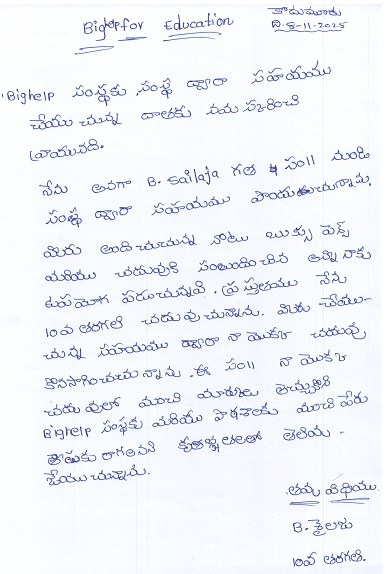 కాదుమూరు
Bighelp for Education
ది. 8-11-2025
Bighelp సంస్థకు సంస్థ ద్వారా సహాయము
చేయుచున్న దాతకు నమస్కరించి
వ్రాయునది.
నేను అనగా B. Sailaja గత 4 సం॥ నుండి
సంస్థ ద్వారా సహాయము పొందుచున్నాను.
మీరు అందించుచున్న నోటు బుక్సు పెన్స్
మరియు చదువుకి సంబంధించిన అన్ని నాకు
ఉపయోగ పడుచున్నవి. ప్రస్తుతము నేను
10వ తరగతి చదువుచున్నాను. మీరు చేయు-
చున్న సహాయము ద్వారా నా యొక్క చదువు
కొనసాగించుచున్నాను. ఈ సం॥ నా యొక్క
చదువులో మంచి మార్కులు తెచ్చుకొని
Bighelp సంస్థకు మరియు పాఠశాలకు మంచి పేరు
తీసుకు రాగలనని కృతజ్ఞతలతో తెలియ-
చేయుచున్నాను.
తమ విధేయు
B. శైలజ
10వ తరగతి.